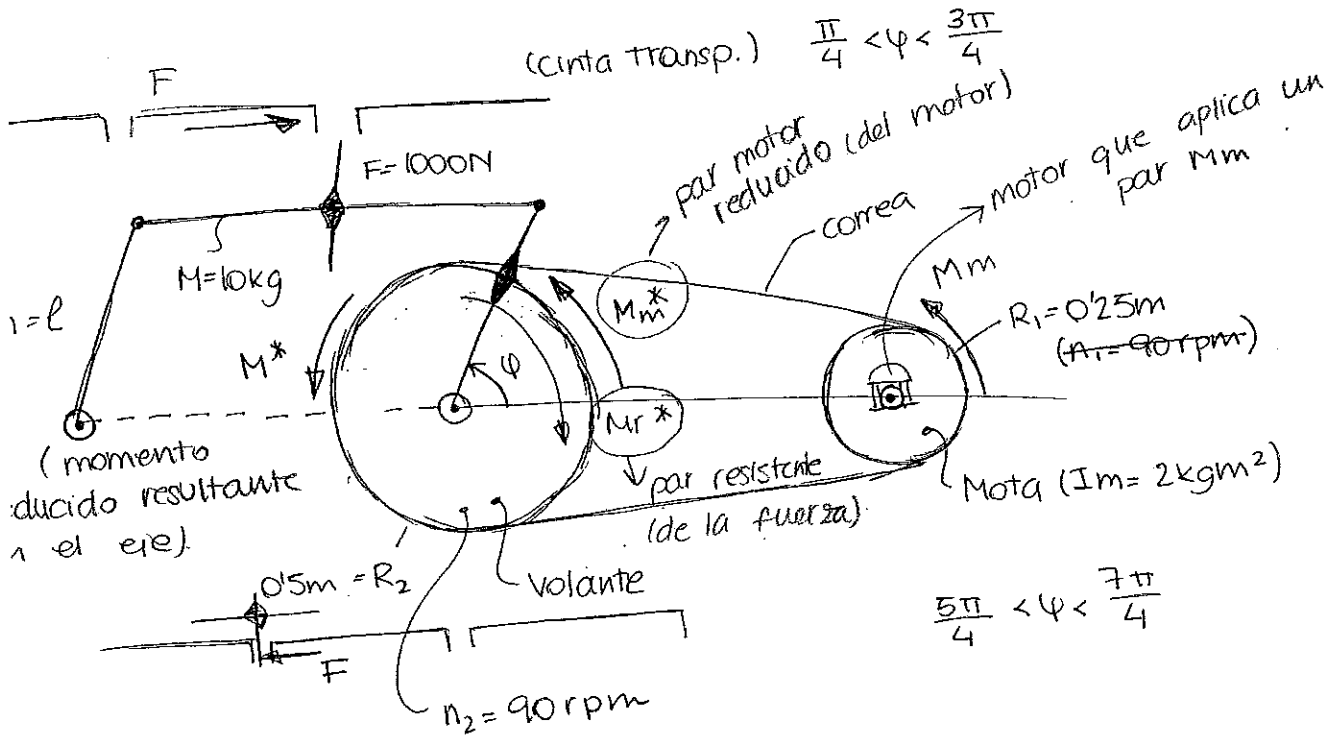 (cinta transp.) π/4 < φ < 3π/4
F
F=1000N
par motor
reducido (del motor)
motor que aplica un
par Mm
correa
M=10kg
Mm*
Mm
R₁=0'25m
(n₁=90rpm)
1=l
M*
φ
Mr*
(momento
ducido resultante
n el eje).
par resistente
(de la fuerza).
Mota (Im= 2kgm²)
0'5m = R₂
Volante
5π/4 < φ < 7π/4
F
n₂=90rpm